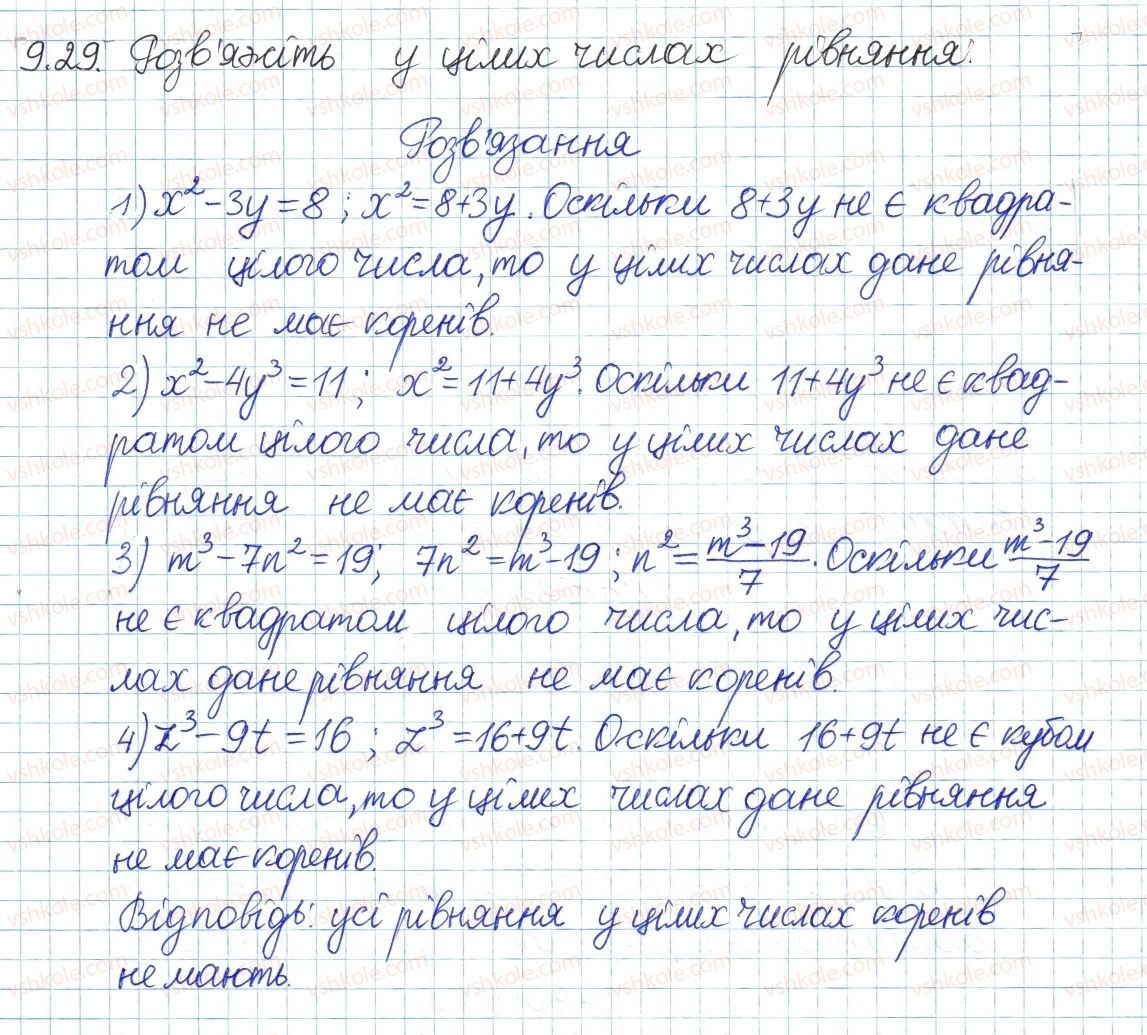 9.29. Розв'яжіть у цілих числах рівняння:
Розв'язання
1) x² - 3y = 8 ; x² = 8 + 3y. Оскільки 8 + 3y не є квадра-
том цілого числа, то у цілих числах дане рівня-
ння не має коренів.
2) x² - 4y³ = 11 ; x² = 11 + 4y³. Оскільки 11 + 4y³ не є квад-
ратом цілого числа, то у цілих числах дане
рівняння не має коренів.
3) m³ - 7n² = 19; 7n² = m³ - 19 ; n² = (m³ - 19)/7. Оскільки (m³ - 19)/7
не є квадратом цілого числа, то у цілих чис-
лах дане рівняння не має коренів.
4) z³ - 9t = 16 ; z³ = 16 + 9t. Оскільки 16 + 9t не є кубом
цілого числа, то у цілих числах дане рівняння
не має коренів.
Відповідь: усі рівняння у цілих числах коренів
не мають.